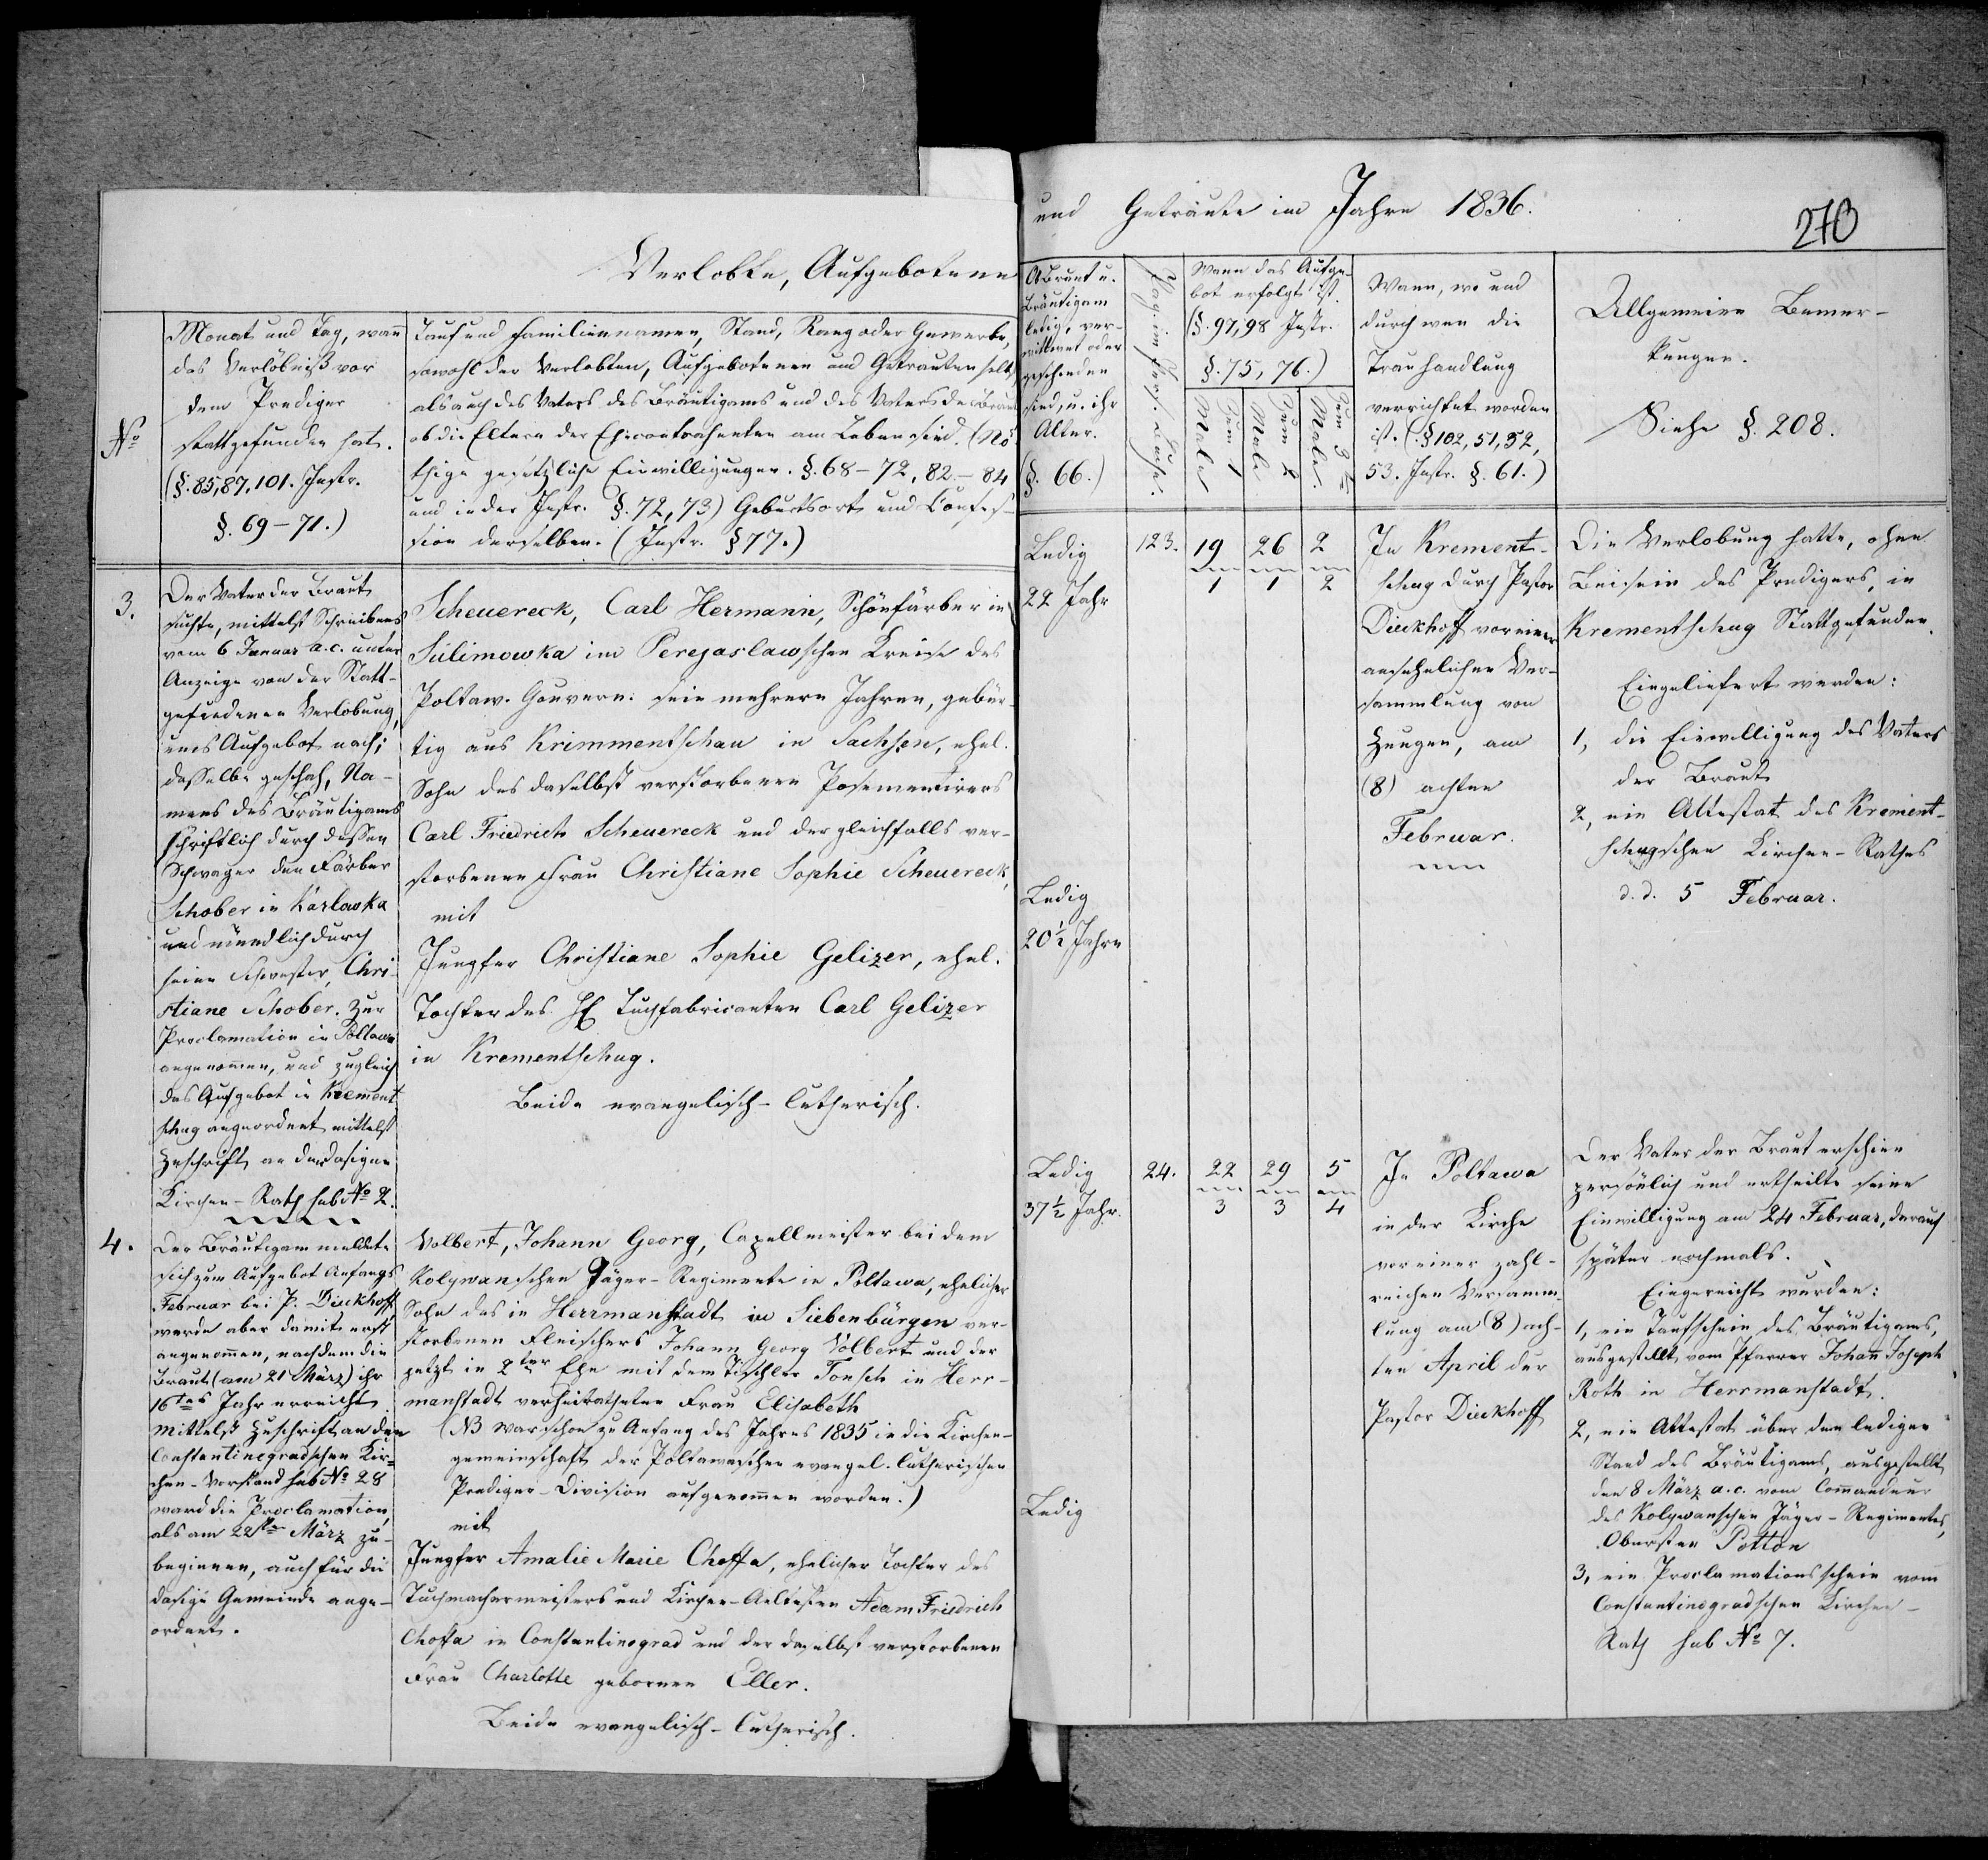 Verlobte, Aufgebotene
und Getraute im Jahre 1836.
270
No
Monat und Tag, wann
das Verlöbniß vor
dem Prediger
stattgefunden hat.
(§. 85, 87, 101. Instr.
§. 69-71.)
Tauf und Familiennamen, Stand, Rang oder Gewerbe,
sowohl der Verlobten, Aufgebotenen und Getrauten selbst
als auch des Vaters des Bräutigams und des Vaters der Braut
ob die Eltern der Ehecontrahenten am Leben sind. (Nö
thige gesetzliche Einwilligungen. §. 68-72, 82-84
und in der Instr. §. 72, 73) Geburtsort und Confes-
sion derselben. (Instr. §77.)
Ob Braut u.
Bräutigam
ledig, ver-
wittwet oder
geschieden
sind, u. ihr
Alter.
(§. 66.)
Pag. im Pers. Buche.
Wann das Aufge-
bot erfolgt ist.
(§. 97, 98 Instr.
§. 75, 76.)
Zum 1
Male
Zum 2
Male
Zum 3
Male
Wann, wo und
durch wen die
Trauhandlung
verrichtet worden
ist. (§ 102, 51, 52,
53. Instr. §. 61.)
Allgemeine Bemer-
kungen.
Siehe §. 208.
3.
Der Vater der Braut
suchte, mittelst Schreibens
vom 6 Januar a.c. unter
Anzeige von der Statt-
gefundenen Verlobung,
ums Aufgebot nach;
dasselbe geschah, Na-
mens des Bräutigams
schriftlich durch dessen
Schwager den Färber
Schober in Karlowka
und mündlich durch
seine Schwester, Chri-
stiane Schober. Zur
Proclamation in Poltawa
angenommen, und zugleich
das Aufgebot in Krement
schug angeordnet mittelst
Zuschrift an den dasigen
Kirchen-Rath sub No 2.
Scheuereck, Carl Hermann, Schönfärber in
Sulimowka im Perejaslawschen Kreise des
Poltaw. Gouvern. seit mehrern Jahren, gebür-
tig aus Krimmentschau in Sachsen, ehel.
Sohn des daselbst verstorbenen Posementirers
Carl Friedrich Scheuereck und der gleichfalls ver-
storbenen Frau Christiane Sophie Scheuereck,
mit
Jungfer Christiane Sophie Gelizer, ehel.
Tochter des H Tuchfabricanten Carl Gelizer
in Krementschug.
Beide evangelisch-lutherisch.
Ledig
22 Jahr
Ledig
20½ Jahre
123.
19
1
26
1
2
2
In Krement-
schug durch Pastor
Dieckhoff vor einer
ansehnlichen Ver-
sammlung von
Zeugen, am
(8) achten
Februar.
Die Verlobung hatte, ohne
Beisein des Predigers, in
Krementschug Stattgefunden.
Eingeliefert wurden:
1, die Einwilligung des Vaters
der Braut
2, ein Attestat des Krement-
schugschen Kirchen-Rathes
d. d. 5 Februar.
4.
Der Bräutigam meldete
sich zum Aufgebot Anfangs
Februar bei P. Dieckhoff,
wurde aber damit erst
angenommen, nachdem die
Braut (am 21 März) ihr
16tes Jahr erreicht.
Mittelst Zuschrift an den
Constantinogradschen Kir-
chen-Vorstand sub No 28
ward die Proclamation,
als am 22ten März zu
beginnen, auch für die
dasige Gemeinde ange-
ordnet.
Volbert, Johann Georg, Capellmeister bei dem
Kolywanschen Jäger-Regimente in Poltawa, ehelicher
Sohn des in Herrmanstadt in Siebenbürgen ver-
storbenen Fleischers Johann Georg Volbert und der
jetzt in 2ter Ehe mit dem Tischler Tonsch in Herr-
manstadt verheiratheten Frau Elisabeth
(NB war schon zu Anfang des Jahres 1835 in die Kirchen-
gemeinschaft der Poltawaschen evangel. lutherischen
Prediger-Division aufgenommen worden.)
mit
Jungfer Amalie Marie Choffa, ehelicher Tochter des
Tuchmachermeisters und Kirchen-Aeltesten Adam Friedrich
Choffa in Constantinograd und der daselbst verstorbenen
Frau Charlotte gebornen Eller.
Beide evangelisch-lutherisch.
Ledig
37½ Jahr.
Ledig
24.
22
3
29
3
5
4
In Poltawa
in der Kirche
vor einer zahl-
reichen Versamm-
lung am (8) ach-
ten April der
Pastor Dieckhoff
Der Vater der Braut erschien
persönlich und ertheilte seine
Einwilligung am 24 Februar, darauf
später nochmals.
Eingereicht wurden:
1, ein Taufschein des Bräutigams,
ausgestellt vom Pfarrer Johann Joseph
Roth in Herrmanstadt.
2, ein Attestat über den ledigen
Stand des Bräutigams, ausgestellt
den 8 März a.c. vom Commandeur
des Kolywanschen Jäger-Regimentes,
Obersten Potton
3, ein Proclamationsschein vom
Constantinogradschen Kirchen-
Rath sub No 7.